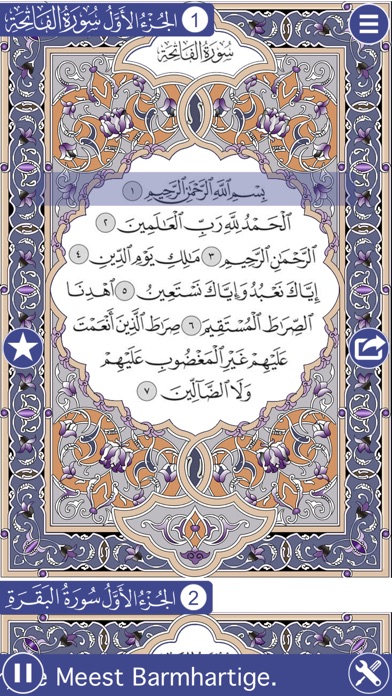 الجُزْءُ الأَوَّلُ سُورَةُ الفَاتِحَة 1
سُورَةُ الْفَاتِحَة
بِسْمِ اللَّهِ الرَّحْمَٰنِ الرَّحِيمِ ١
الْحَمْدُ لِلَّهِ رَبِّ الْعَالَمِينَ ٢
الرَّحْمَٰنِ الرَّحِيمِ ٣ مَالِكِ يَوْمِ الدِّينِ ٤
إِيَّاكَ نَعْبُدُ وَإِيَّاكَ نَسْتَعِينُ ٥ اهْدِنَا
الصِّرَاطَ الْمُسْتَقِيمَ ٦ صِرَاطَ الَّذِينَ أَنْعَمْتَ
عَلَيْهِمْ غَيْرِ الْمَغْضُوبِ عَلَيْهِمْ
وَلَا الضَّالِّينَ ٧
الجُزْءُ الأَوَّلُ سُورَةُ البَقَرَة 2
Meest Barmhartige.